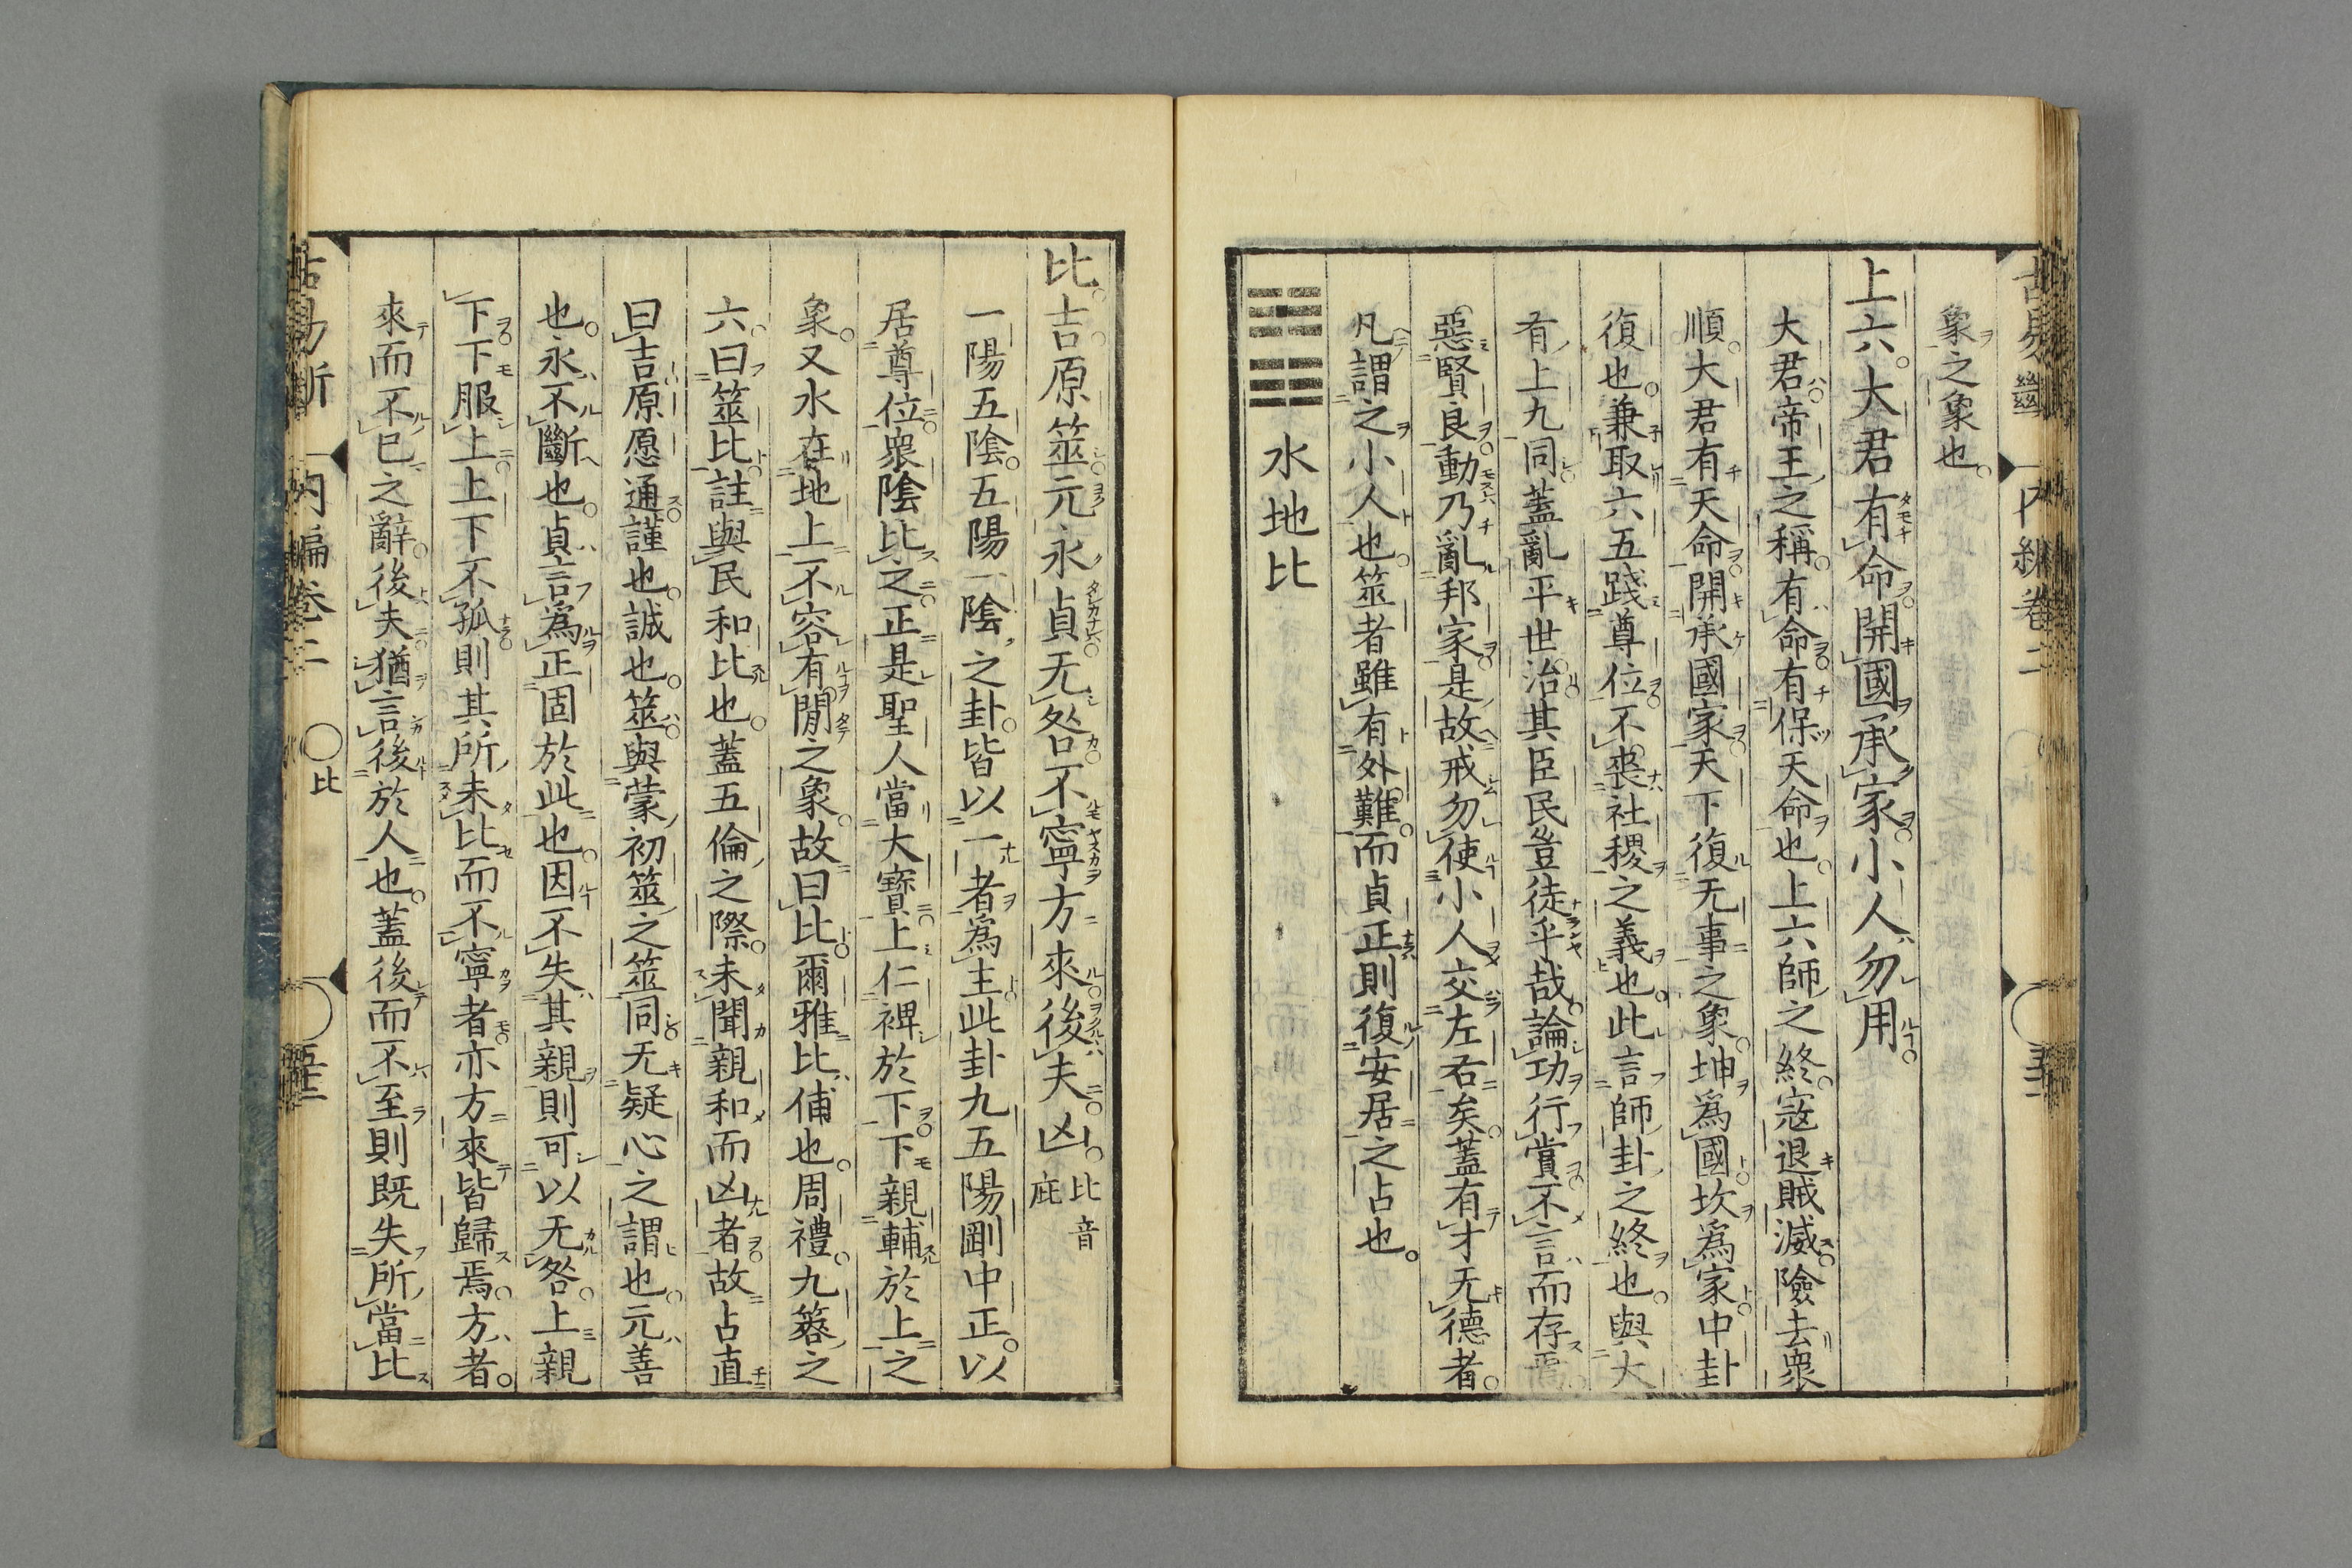 象之象也
上六大君有命開國承家小人勿用
大君帝王之稱有命有保天命也上六師之終寇退賊滅險去衆
順大君有天命開承國家天下復无事之象坤爲國坎爲家中卦
復也兼取六五踐尊位不喪社稷之義也此言師卦之終也與大
有上九同蓋亂平世治其臣民豈徒乎哉論功行賞不言而存焉
惡賢良動乃亂邦家是故戒勿使小人交左右矣蓋有才无德者
凡謂之小人也筮者雖有外難而貞正則復安居之占也
水地比
比吉原筮元永貞无咎不寧方來後夫凶比音庇
一陽五陰五陽一陰之卦皆以一者爲主此卦九五陽剛中正以
居尊位衆陰比之正是聖人當大寶上仁裨於下下親輔於上之
象又水在地上不容有間之象故曰比爾雅比俌也周禮九簭之
六曰筮比註與民和比也蓋五倫之際未聞親和而凶者故占直
曰吉原愿通謹也誠也筮與蒙初筮之筮同无疑心之謂也元善
也永不斷也貞言爲正固於此也因不失其親則可以无咎上親
下下服上上下不孤則其所未比而不寧者亦方來皆歸焉方者
來而不已之辭後夫猶言後於人也蓋後而不至則既失所當比
古易斷 內編卷二 比